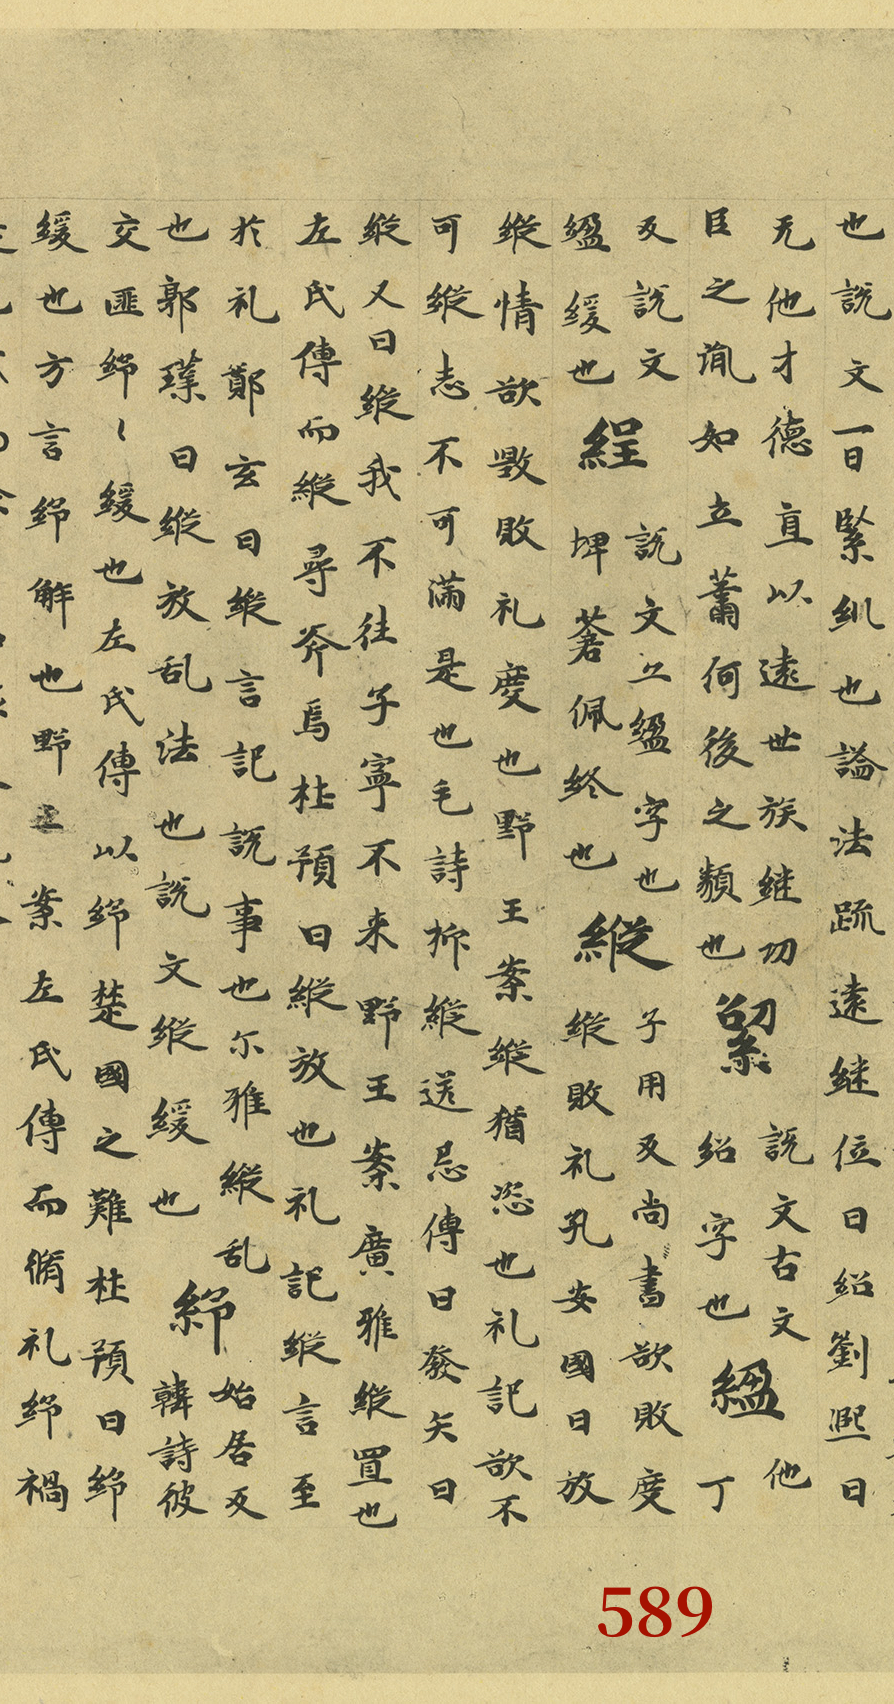 也說文一曰緊糺也謚法疏遠継位曰紹劉熈曰
无他才德直以遠世族継功說文古文他
臣之胤如立蕭何後之類也綤紹字也丁
反說文說文亦字也子用反尚書欲敗度
緩也䋫埤蒼佩終也縱縱敗礼孔安國曰放
縱情欲毀敗礼度也野王案縱猶恣也礼記欲不
可縱志不可滿是也毛詩抑縱送忌傳曰發矢曰
縱又曰縱我不往子寧不来野王案廣雅縱置也
左氏傳而縱尋斧焉杜預曰縱放也礼記縱言至
於礼鄭玄曰縱言記說事也尓雅縱乱始居反
也郭璞曰縱放乱法也說文縱緩也紓韓詩彼
交匪紓〻緩也左氏傳以紓楚國之難杜預曰紓
緩也方言紓解也野王案左氏傳而脩礼紓禍
589